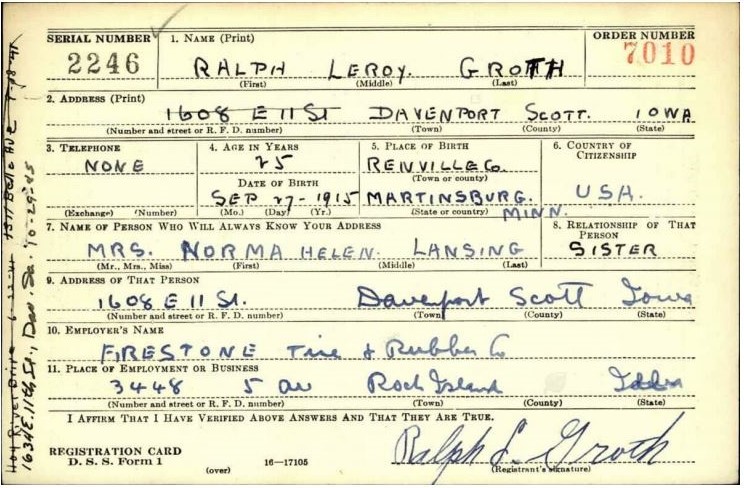 SERIAL NUMBER 1. NAME (Print) ORDER NUMBER
2246 RALPH LEROY. GROTH 7010
(First) (Middle) (Last)
2. ADDRESS (Print)
1608 E 11 St DAVENPORT SCOTT. IOWA
(Number and street or R. F. D. number) (Town) (County) (State)
3. TELEPHONE 4. AGE IN YEARS 5. PLACE OF BIRTH 6. COUNTRY OF CITIZENSHIP
NONE 25 RENVILLE Co.
DATE OF BIRTH (Town or county)
SEP 27-1915 MARTINSBURG. USA.
(Exchange) (Number) (Mo.) (Day) (Yr.) (State or country) MINN.
7. NAME OF PERSON WHO WILL ALWAYS KNOW YOUR ADDRESS 8. RELATIONSHIP OF THAT PERSON
MRS. NORMA HELEN. LANSING SISTER
(Mr., Mrs., Miss) (First) (Middle) (Last)
9. ADDRESS OF THAT PERSON
1608 E 11 St. Davenport Scott Iowa
(Number and street or R. F. D. number) (Town) (County) (State)
10. EMPLOYER'S NAME
FIRESTONE Tire & Rubber Co
11. PLACE OF EMPLOYMENT OR BUSINESS
3448 5 av Rock Island
(Number and street or R. F. D. number) (Town) (County) (State)
I AFFIRM THAT I HAVE VERIFIED ABOVE ANSWERS AND THAT THEY ARE TRUE.
Ralph L. Groth
REGISTRATION CARD
D. S. S. Form 1 (over) 16-17105 (Registrant's signature)
River Drive 6-22-41 Belle Ave
1634 E. 11th St., Dav. Ia. 10-29-45